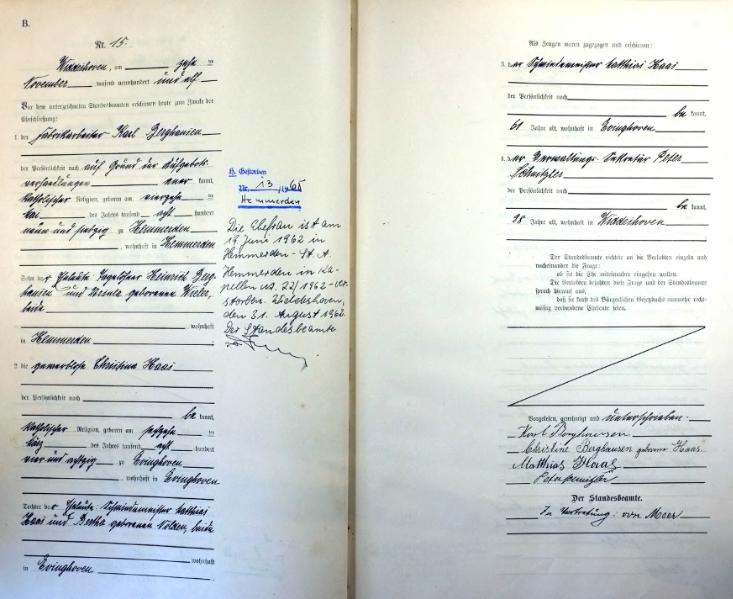 B.
Nr. 15.
Wickrathoven, am zehn ten
November tausend neunhundert und elf
Vor dem unterzeichneten Standesbeamten erschienen heute zum Zweck der
Eheschließung:
1. der Fabrikarbeiter Karl Berghausen
der Persönlichkeit nach auf Grund der Aufgebots-
verhandlungen kannt,
katholischer Religion, geboren am vierzehn ten
Mai des Jahres tausend acht hundert
neun und siebzig zu Hemmerden
, wohnhaft in Hemmerden
Sohn der Eheleute Heinrich Berg-
hausen und Ursula geborenen
beide wohnhaft
in Hemmerden
2. die gewerblose Christina Haas
der Persönlichkeit nach
be kannt,
katholischer Religion, geboren am ten
März des Jahres tausend acht hundert
vier und achtzig zu Evinghoven
, wohnhaft in Evinghoven
Tochter der Eheleute Schreinermeister Matthias
Haas und geborenen beide
wohnhaft
in Evinghoven
H. Gestorben
Nr. 13/1965
Hemmerden
Die Ehefrau ist am
19. Juni 1962 in
Hemmerden - St. A.
Hemmerden in Ka-
pellen Nr. 22/1962 - ver-
storben. Wevelinghoven,
den 31. August 1962.
Der Standesbeamte
Als Zeugen waren zugezogen und erschienen:
3. der Schreinermeister Matthias Haas
der Persönlichkeit nach
be kannt,
61 Jahre alt, wohnhaft in Evinghoven
4. der Verwaltungs-Sekretär Peter
der Persönlichkeit nach
be kannt,
38 Jahre alt, wohnhaft in
Der Standesbeamte richtete an die Verlobten einzeln und
nacheinander die Frage:
ob sie die Ehe miteinander eingehen wollen.
Die Verlobten bejahten diese Frage und der Standesbeamte
sprach hierauf aus,
daß sie kraft des Bürgerlichen Gesetzbuchs nunmehr recht-
mäßig verbundene Eheleute seien.
Vorgelesen, genehmigt und unterschrieben.
Karl Berghausen
Christine Berghausen geborene Haas.
Matthias Haas
Der Standesbeamte.
In Vertretung: von Meer